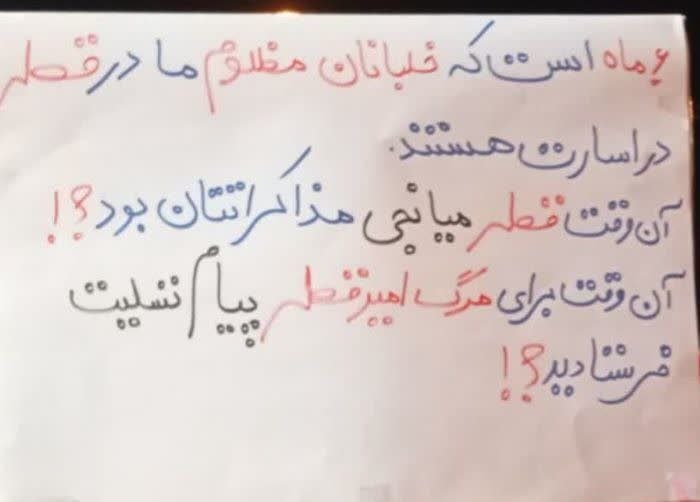 ۶ ماه است که خلبانان مظلوم ما در قطر
در اسارت هستند.
آن وقت قطر میانجی مذاکراتتان بود؟!
آن وقت برای مرگ امیر قطر پیام تسلیت
فرستادید؟!